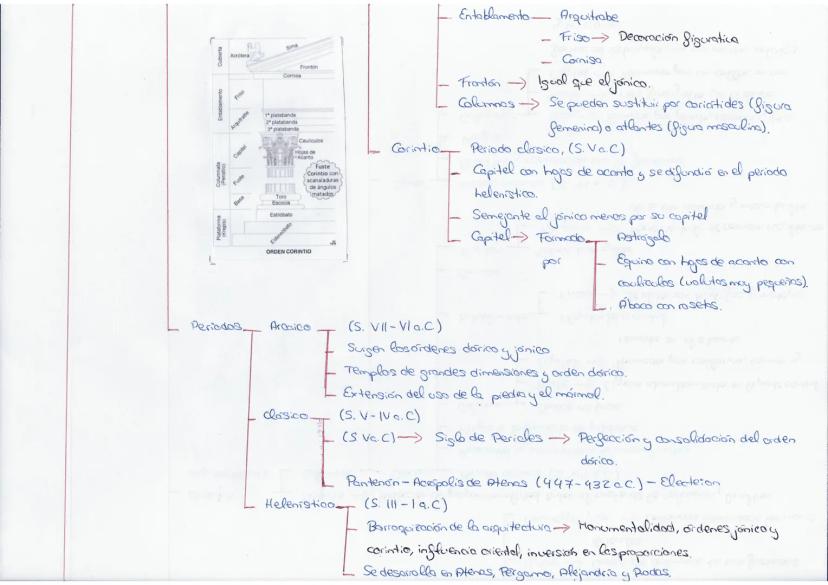 Entablamento — Arquitrabe
— Friso → Decoración figurativa
— Cornisa
— Frontón → Igual que el jónico.
— Columnas → Se pueden sustituir por cariátides (figura
femenina) o atlantes (figura masculina).
Corintio — Periodo clásico, (S. V a.C)
— Capitel con hojas de acanto y se difundió en el periodo
helenístico.
— Semejante al jónico menos por su capitel
— Capitel → Formado — Astrágalo
por — Equino con hojas de acanto con
caulículos (volutas muy pequeñas).
— Ábaco con rosetas.
Cubierta
Acrótera
Sima
Frontón
Cornisa
Entablamento
Friso
Arquitrabe
1ª platabanda
2ª platabanda
3ª platabanda
Columnata
Capitel
Caulículos
Hojas de
Acanto
Fuste
Corintio con
acanaladuras
de ángulos
matados
Fuste
Base
Toro
Escocia
Plataforma
Estilóbato
Estereóbato
ORDEN CORINTIO
Periodos — Arcaico — (S. VII - VI a.C)
— Surgen los órdenes dórico y jónico
— Templos de grandes dimensiones y orden dórico.
— Extensión del uso de la piedra y el mármol.
Clásico — (S. V - IV a.C)
— (S V a.C) → Siglo de Pericles → Perfección y consolidación del orden
dórico.
— Partenón - Acrópolis de Atenas (447-432 a.C.) - Electeion
Helenístico — (S. III - I a.C)
— Barroquización de la arquitectura → Monumentalidad, órdenes jónico y
corintio, influencia oriental, inversión en las proporciones.
— Se desarolla en Atenas, Pérgamo, Alejandría y Rodas.